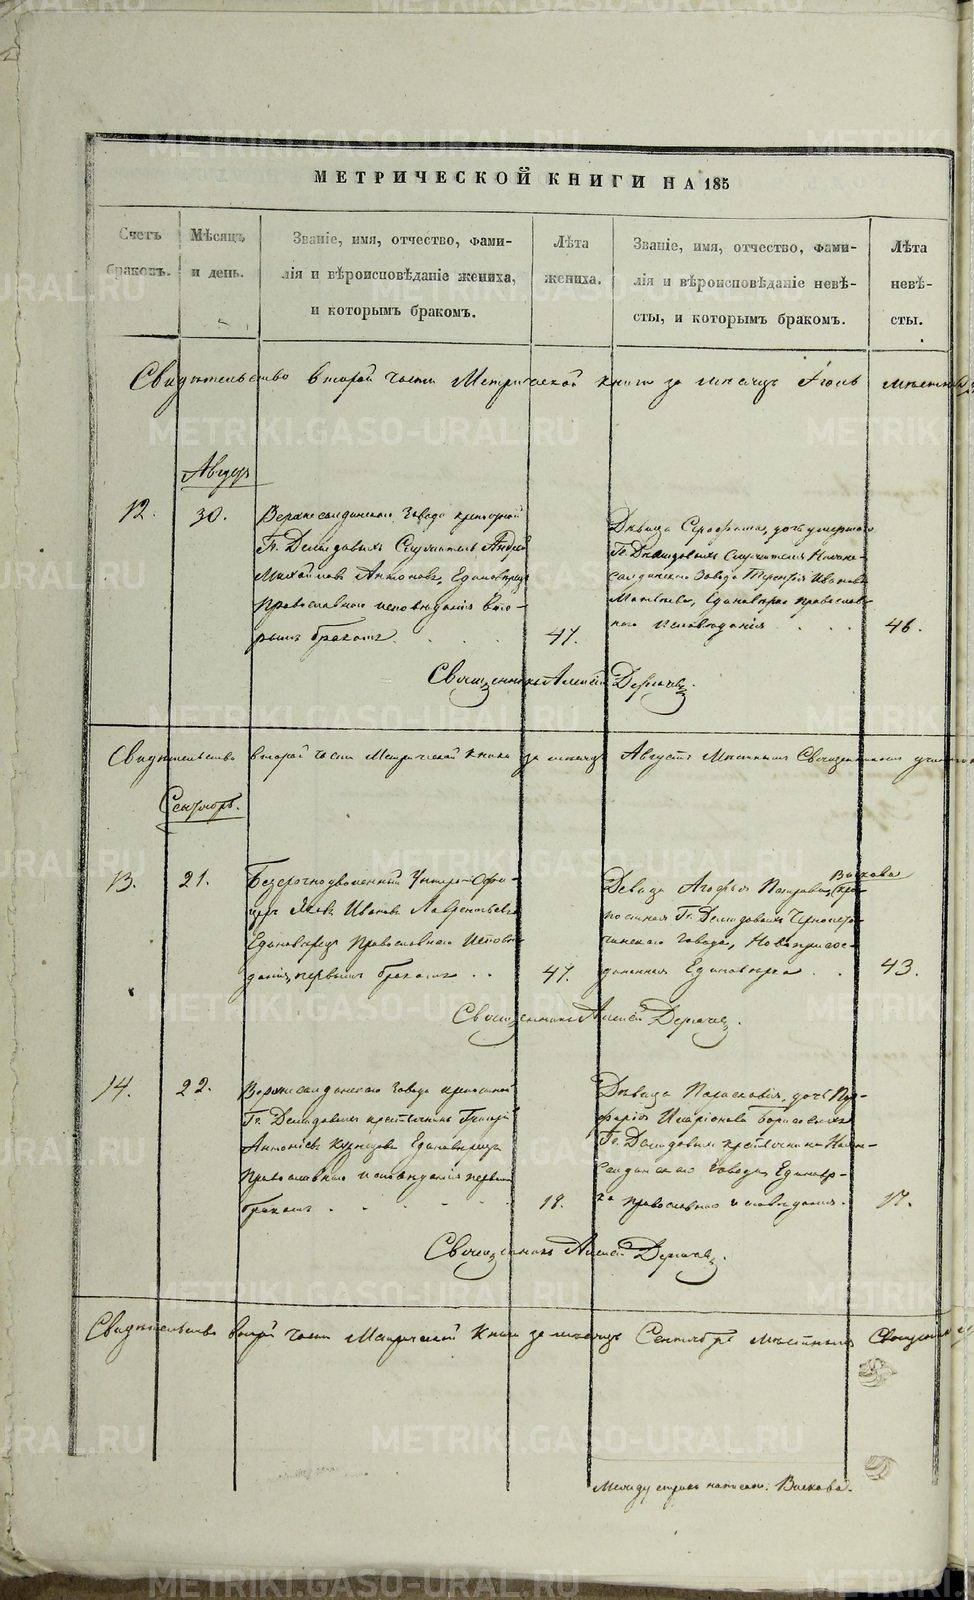 МЕТРИЧЕСКОЙ КНИГИ НА 185
Счетъ браковъ.
Мѣсяцъ и день.
Званіе, имя, отчество, фами-
лія и вѣроисповѣданіе жениха,
и которымъ бракомъ.
Лѣта
жениха.
Званіе, имя, отчество, фами-
лія и вѣроисповѣданіе невѣ-
сты, и которымъ бракомъ.
Лѣта
невѣ-
сты.
Свидѣтельство второй части Метрической книги за мѣсяцъ Іюль
Август
12.
30.
Верхнесалдинскаго Завода крепостной
Гг. Демидовыхъ Служитель Андрей
Михайловъ Антоновъ, Единоверецъ
Православнаго исповѣданія вто-
рымъ бракомъ
47.
Дѣвица Серафима, дочь умершаго
Гг. Демидовыхъ Служителя Нижне-
салдинскаго Завода Терентія Иванова
Единоверка православ-
наго исповѣданія
46.
Священникъ Алексѣй
Свидѣтельство второй части Метрической книги за мѣсяцъ Августъ Мѣстнымъ Священникомъ
Сентябрь.
13.
21.
Безсрочноотпускной Унтеръ-Офи-
церъ Яковъ Ивановъ Лаврентьевъ
Единоверецъ Православнаго Исповѣ-
данія, первымъ бракомъ
47.
Девица Агафья Волкова
Гг. Демидовыхъ Черноисто-
чинскаго завода, Новоприсое-
диненная Единоверка
43.
Священникъ Алексѣй
14.
22.
Верхнесалдинскаго Завода крепостной
Гг. Демидовыхъ крестьянинъ Григорій
Антоніевъ Кузнецовъ Единоверецъ
Православнаго исповѣданія первымъ
бракомъ
18.
Дѣвица Параскевія, дочь Пор-
фирія Иларіонова
Гг. Демидовыхъ крестьянина Нижне-
салдинскаго Завода, Единовер-
ка православнаго исповѣданія.
17.
Священникъ Алексѣй
Свидѣтельство второй части Метрической Книги за мѣсяцъ Сентябрь мѣстнымъ
Между строкъ написано: Волкова.
METRIKI.GASO-URAL.RU